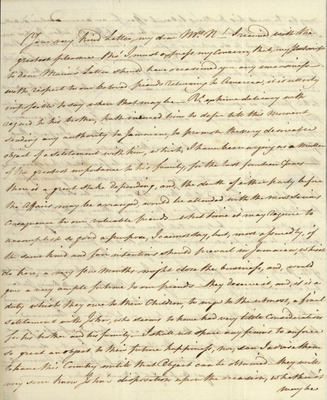 Your very kind Letter, my dear Mrs. R. I received with the
greatest pleasure tho' I must express my concern that my
to dear Maria's Letter should have occasioned you any uneasiness
with respect to our beloved friends returning to America, it is utterly
impossible to say when that may be. delicacy with
regard to his brother, hath induced him to defer till this moment
sending any authority to Jamaica, to promote the very desireable
object of a settlement with him, which I have been urging as a matter
of the greatest importance to his family, for the last fourteen years
there is a great Stake depending, and the death of either party before
the Affairs may be arranged would be attended with the most serious
Consequences to our valuable friends. what time it may require to
accomplish so good a purpose, I cannot say, but, most assuredly, if
the same kind and fair intentions should prevail in Jamaica, which
do here, a very few Months might close the business, and would
give a very ample fortune to our friends. they deserve it, and, it is a
duty, which they owe to their Children, to urge to the utmost, a final
settlement. to John, who seems to have had very little Consideration
for his brother and his family. I shall not spare any pains to enforce
so great an object to their future happiness, nor, can I advise them
to leave this Country until that Object can be obtained. they will
very soon know John's disposition upon the occasion, whether it
may be